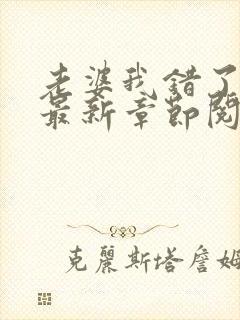 老婆我错了
最新章节阅
克麗斯塔詹姆